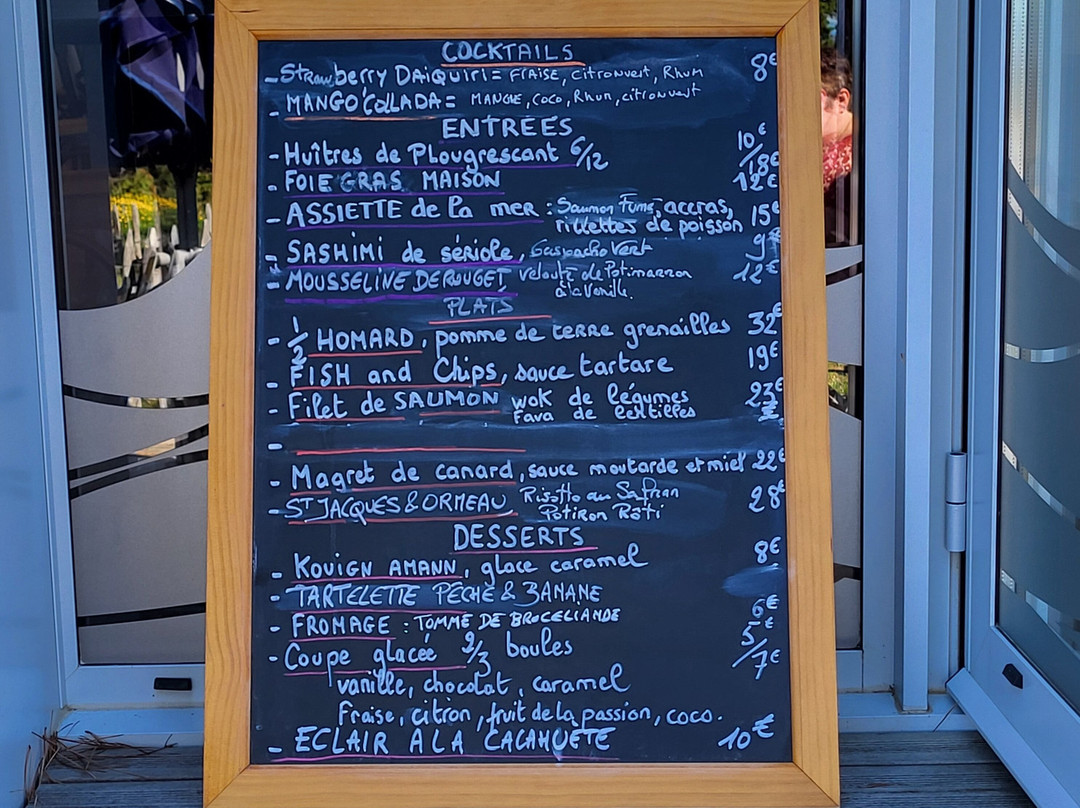 COCKTAILS
- Strawberry DAIQUIRI = FRAISE, citron vert, Rhum 8€
- MANGO COLLADA = MANGUE, COCO, Rhum, citron vert
ENTRÉES
- Huîtres de Plougrescant 6/12 10€/18€
- FOIE GRAS MAISON 12€
- ASSIETTE de la mer : Saumon Fumé, accras, 15€
rillettes de poisson
- SASHIMI de sériole, Gaspacho Vert 9€
- MOUSSELINE DE ROUGET, velouté de Potimarron 12€
à la Vanille.
PLATS
- 1/2 HOMARD, pomme de terre grenailles 32€
- FISH and Chips, sauce tartare 19€
- Filet de SAUMON wok de légumes 23€
Fava de lentilles
-
- Magret de canard, sauce moutarde et miel 22€
- ST JACQUES & ORMEAU Risotto au Safran 28€
Potiron Rôti
DESSERTS
- KOUIGN AMANN, glace caramel 8€
- TARTELETTE PÊCHE & BANANE
- FROMAGE : TOMME DE BROCELIANDE 6€
- Coupe glacée 2/3 boules 5€/7€
vanille, chocolat, caramel
Fraise, citron, fruit de la passion, coco.
- ECLAIR A LA CACAHUETE 10€